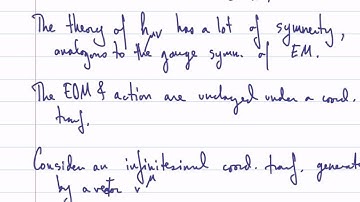 The theory of hμν has a lot of symmetry,
analogous to the gauge symm. of EM.
The EOM & action are unchaged under a coord.
transf.
Consider an infinitesimal coord. transf. generate
by a vector v^μ